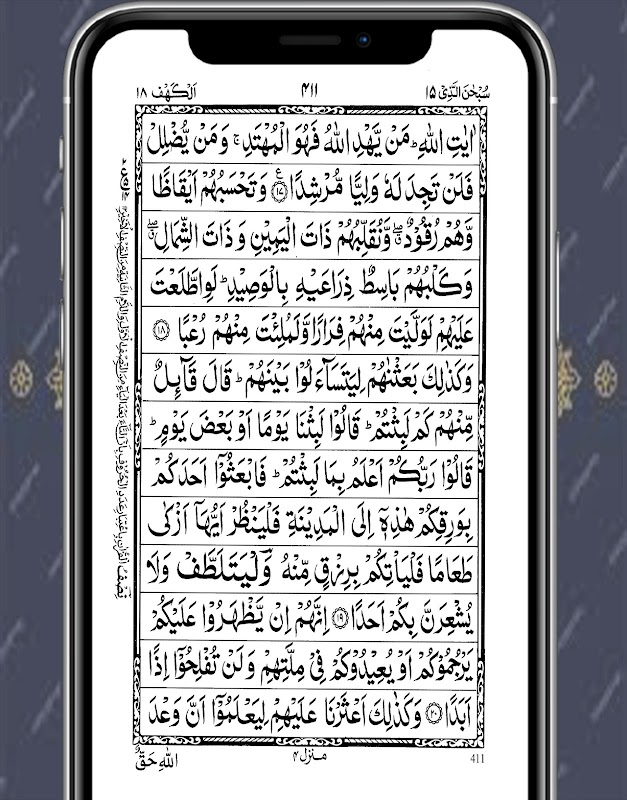 سُبْحٰنَ الَّذِیْ ۱۵
۴۱۱
اَلْكَهْف ۱۸
اٰیٰتِ اللّٰهِ ؕ مَنْ یَّهْدِ اللّٰهُ فَهُوَ الْمُهْتَدِ ۚ وَ مَنْ یُّضْلِلْ
فَلَنْ تَجِدَ لَهٗ وَلِیًّا مُّرْشِدًا ﴿۱۷﴾ ع وَ تَحْسَبُهُمْ اَیْقَاظًا
وَّ هُمْ رُقُوْدٌ ۖۗ وَّ نُقَلِّبُهُمْ ذَاتَ الْیَمِیْنِ وَ ذَاتَ الشِّمَالِ ۖۗ
وَ كَلْبُهُمْ بَاسِطٌ ذِرَاعَیْهِ بِالْوَصِیْدِ ؕ لَوِ اطَّلَعْتَ
عَلَیْهِمْ لَوَلَّیْتَ مِنْهُمْ فِرَارًا وَّ لَمُلِئْتَ مِنْهُمْ رُعْبًا ﴿۱۸﴾
وَ كَذٰلِكَ بَعَثْنٰهُمْ لِیَتَسَآءَلُوْا بَیْنَهُمْ ؕ قَالَ قَآئِلٌ
مِّنْهُمْ كَمْ لَبِثْتُمْ ؕ قَالُوْا لَبِثْنَا یَوْمًا اَوْ بَعْضَ یَوْمٍ ؕ
قَالُوْا رَبُّكُمْ اَعْلَمُ بِمَا لَبِثْتُمْ ؕ فَابْعَثُوْۤا اَحَدَكُمْ
بِوَرِقِكُمْ هٰذِهٖۤ اِلَی الْمَدِیْنَةِ فَلْیَنْظُرْ اَیُّهَاۤ اَزْكٰی
طَعَامًا فَلْیَاْتِكُمْ بِرِزْقٍ مِّنْهُ وَ لْیَتَلَطَّفْ وَ لَا
یُشْعِرَنَّ بِكُمْ اَحَدًا ﴿۱۹﴾ اِنَّهُمْ اِنْ یَّظْهَرُوْا عَلَیْكُمْ
یَرْجُمُوْكُمْ اَوْ یُعِیْدُوْكُمْ فِیْ مِلَّتِهِمْ وَ لَنْ تُفْلِحُوْۤا اِذًا
اَبَدًا ﴿۲۰﴾ وَ كَذٰلِكَ اَعْثَرْنَا عَلَیْهِمْ لِیَعْلَمُوْۤا اَنَّ وَعْدَ
411
منزل ۴
اللّٰهِ حَقٌّ